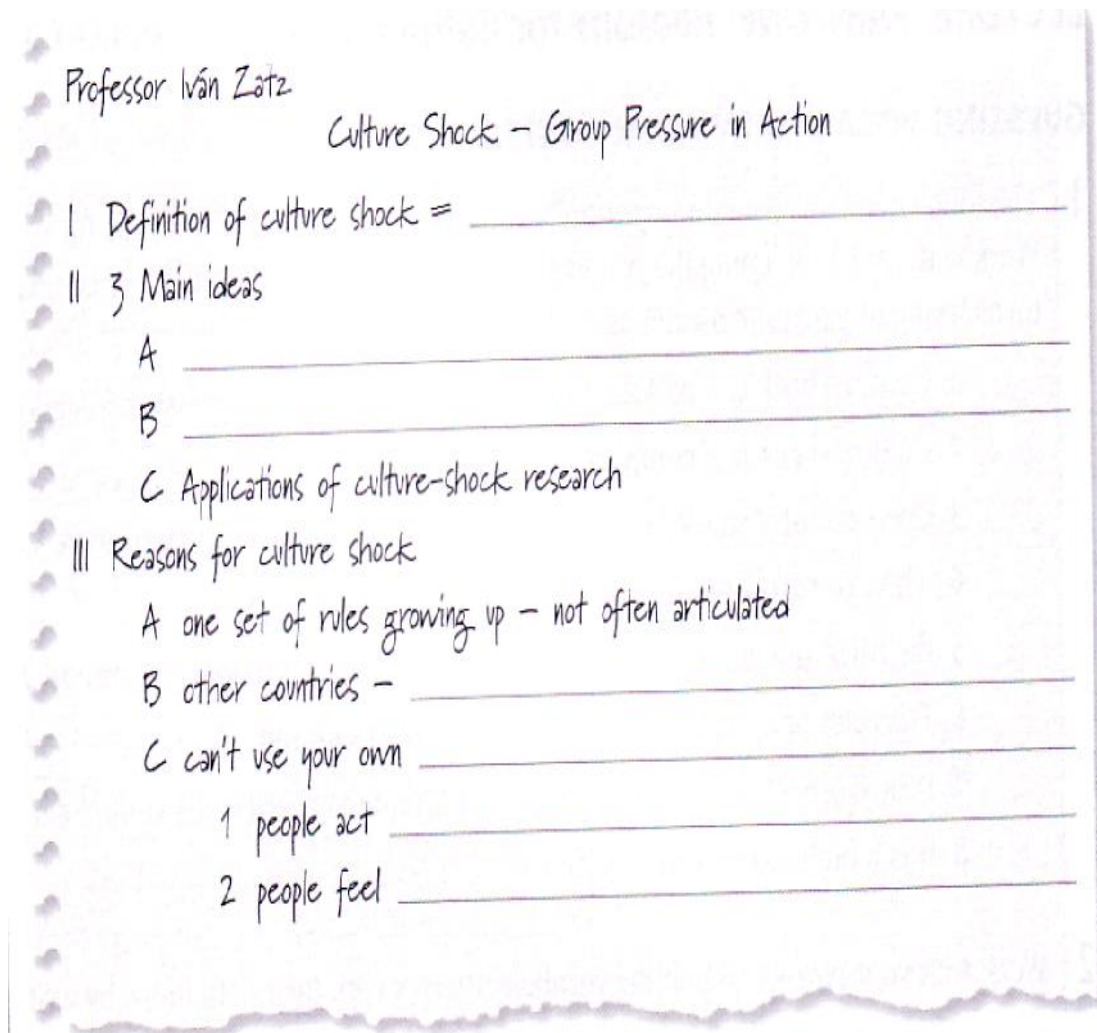 Professor Iván Zatz
Culture Shock – Group Pressure in Action
I Definition of culture shock =
II 3 Main ideas
A
B
C Applications of culture-shock research
III Reasons for culture shock
A one set of rules growing up – not often articulated
B other countries –
C can't use your own
1 people act
2 people feel